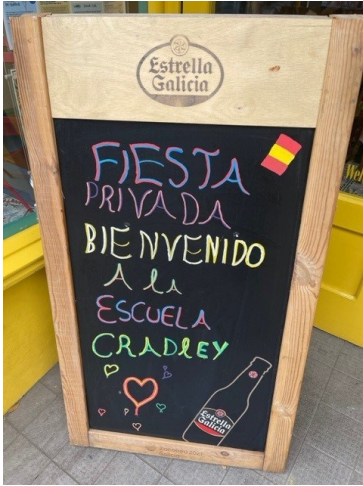 Estrella
Galicia
FIESTA
PRIVADA
BIENVENIDO
A la
ESCUELA
CRADLEY
Estrella
Galicia